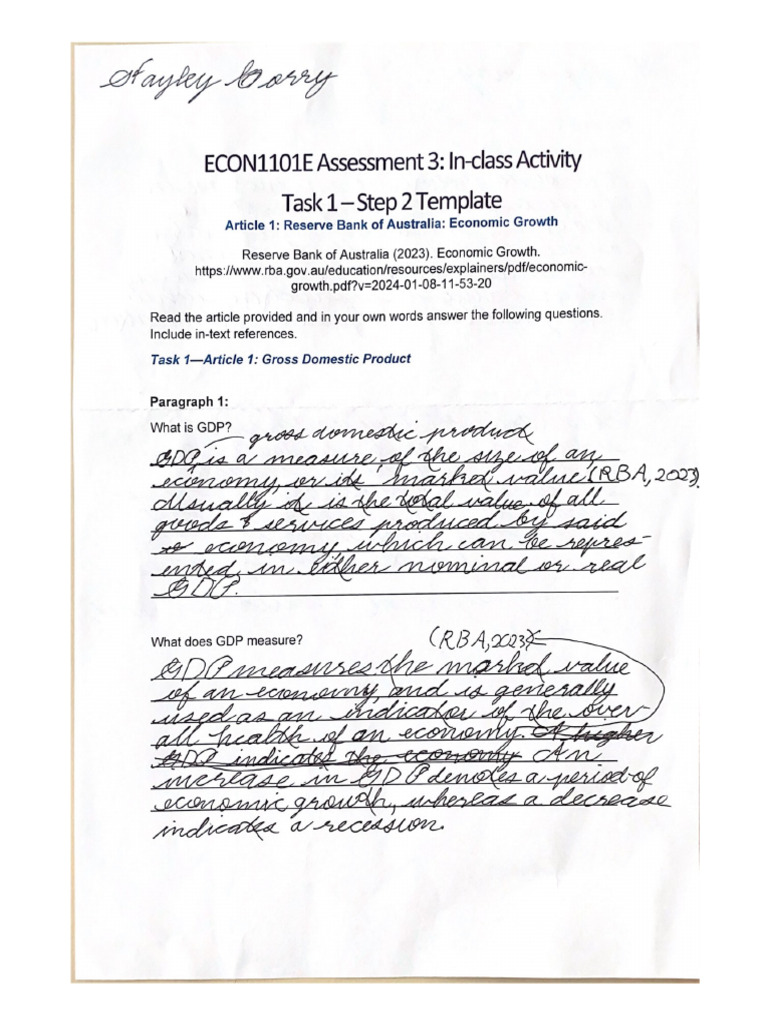 Hayley Corry
ECON1101E Assessment 3: In-class Activity
Task 1 – Step 2 Template
Article 1: Reserve Bank of Australia: Economic Growth
Reserve Bank of Australia (2023). Economic Growth.
https://www.rba.gov.au/education/resources/explainers/pdf/economic-
growth.pdf?v=2024-01-08-11-53-20
Read the article provided and in your own words answer the following questions.
Include in-text references.
Task 1—Article 1: Gross Domestic Product
Paragraph 1:
What is GDP?
gross domestic product
GDP is a measure of the size of an
economy or its' market value (RBA, 2023).
Usually it is the total value of all
goods & services produced by said
economy, which can be repres-
ented in either nominal or real
GDP.
What does GDP measure?
(RBA, 2023)
GDP measures the market value
of an economy, and is generally
used as an indicator of the over-
all health of an economy. A higher
GDP indicates the economy An
increase in GDP denotes a period of
economic growth, whereas a decrease
indicates a recession.